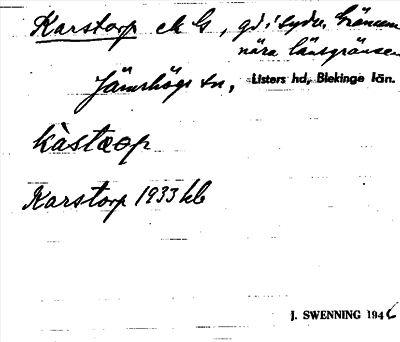 Karstorp ek G, gd i sydv. Gränum
nära länsgränsen
Jämshögs sn, Listers hd, Blekinge län.
kàstɔp
Karstorp 1933 hk
J. SWENNING 1946